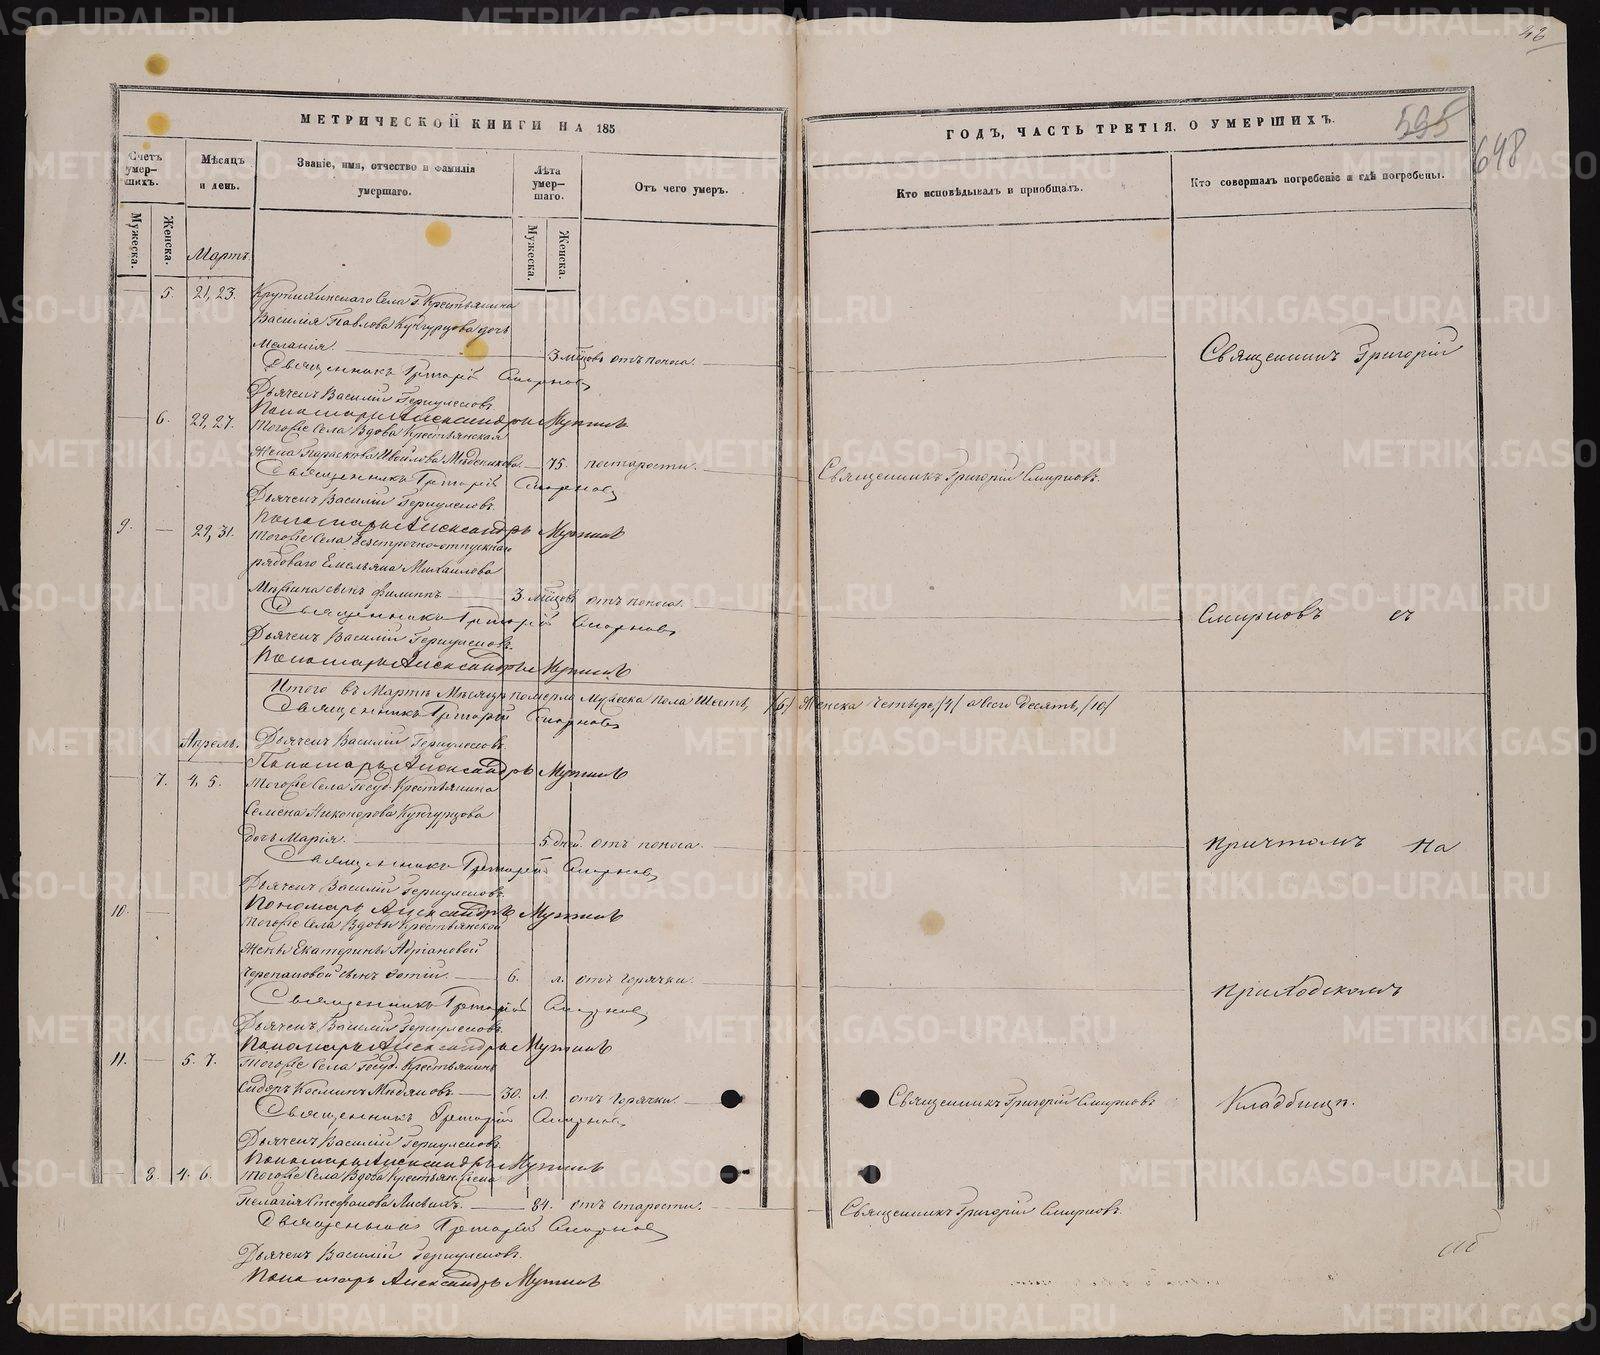 МЕТРИЧЕСКОЙ КНИГИ НА 185
ГОДЪ, ЧАСТЬ ТРЕТІЯ. О УМЕРШИХЪ.
595
648
Счетъ умер-шихъ.
Мѣсяцъ и день.
Званіе, имя, отчество и фамилія умершаго.
Лѣта умер-шаго.
Отъ чего умеръ.
Кто исповѣдывалъ и пріобщалъ.
Кто совершалъ погребеніе и гдѣ погребены.
Мужеска.
Женска.
Мужеска.
Женска.
Мартъ.
5. 21, 23. Крутихинскаго Села Г. Крестьянина
Василія Павлова Кунгурцова дочь
Меланія. 3 мѣсцовъ отъ поноса.
Священникъ Григорій
Священникъ Григорій Смирновъ
Дьячекъ Василій
Пономарь Александръ
6. 22, 27. Тогоже Села Вдова Крестьянская
Жена Параскева 75. по старости. Священникъ Григорій Смирновъ.
Священникъ Григорій Смирновъ
Дьячекъ Василій
Пономарь Александръ
9. 29, 31. Тогоже Села безсрочно-отпускнаго
рядоваго Емельяна Михаилова
сынъ Филиппъ 3. мѣсцовъ отъ поноса.
Смирновъ съ
Священникъ Григорій Смирновъ
Дьячекъ Василій
Пономарь Александръ
Итого въ Мартѣ Мѣсяцѣ померло Мужеска пола Шесть, /6/ Женска Четыре, /4/ а всего Десять, /10/
Священникъ Григорій Смирновъ
Апрель. Дьячекъ Василій
Пономарь Александръ
7. 4, 5. Тогоже Села Госуд. Крестьянина
Семена Никонорова Кунгурцова
дочь Марія. 5 дней. отъ поноса.
причтомъ На
Священникъ Григорій Смирновъ
Дьячекъ Василій
Пономарь Александръ
10. Тогоже Села Вдовы Крестьянской
Жены Екатерины Адріановой
Черепановой сынъ Фотій. 6. л. отъ горячки.
приходскомъ
Священникъ Григорій Смирновъ
Дьячекъ Василій
Пономарь Александръ
11. 5. 7. Тогоже Села Госуд. Крестьянинъ
Сидоръ Косминъ 30. л. отъ горячки. Священникъ Григорій Смирновъ
Кладбищѣ.
Священникъ Григорій Смирновъ
Дьячекъ Василій
Пономарь Александръ
8. 4. 6. Тогоже Села Вдова Крестьян. Жена
Пелагія Стефанова 84. отъ старости. Священникъ Григорій Смирновъ.
Священникъ Григорій Смирновъ
Дьячекъ Василій
Пономарь Александръ
METRIKI.GASO-URAL.RU